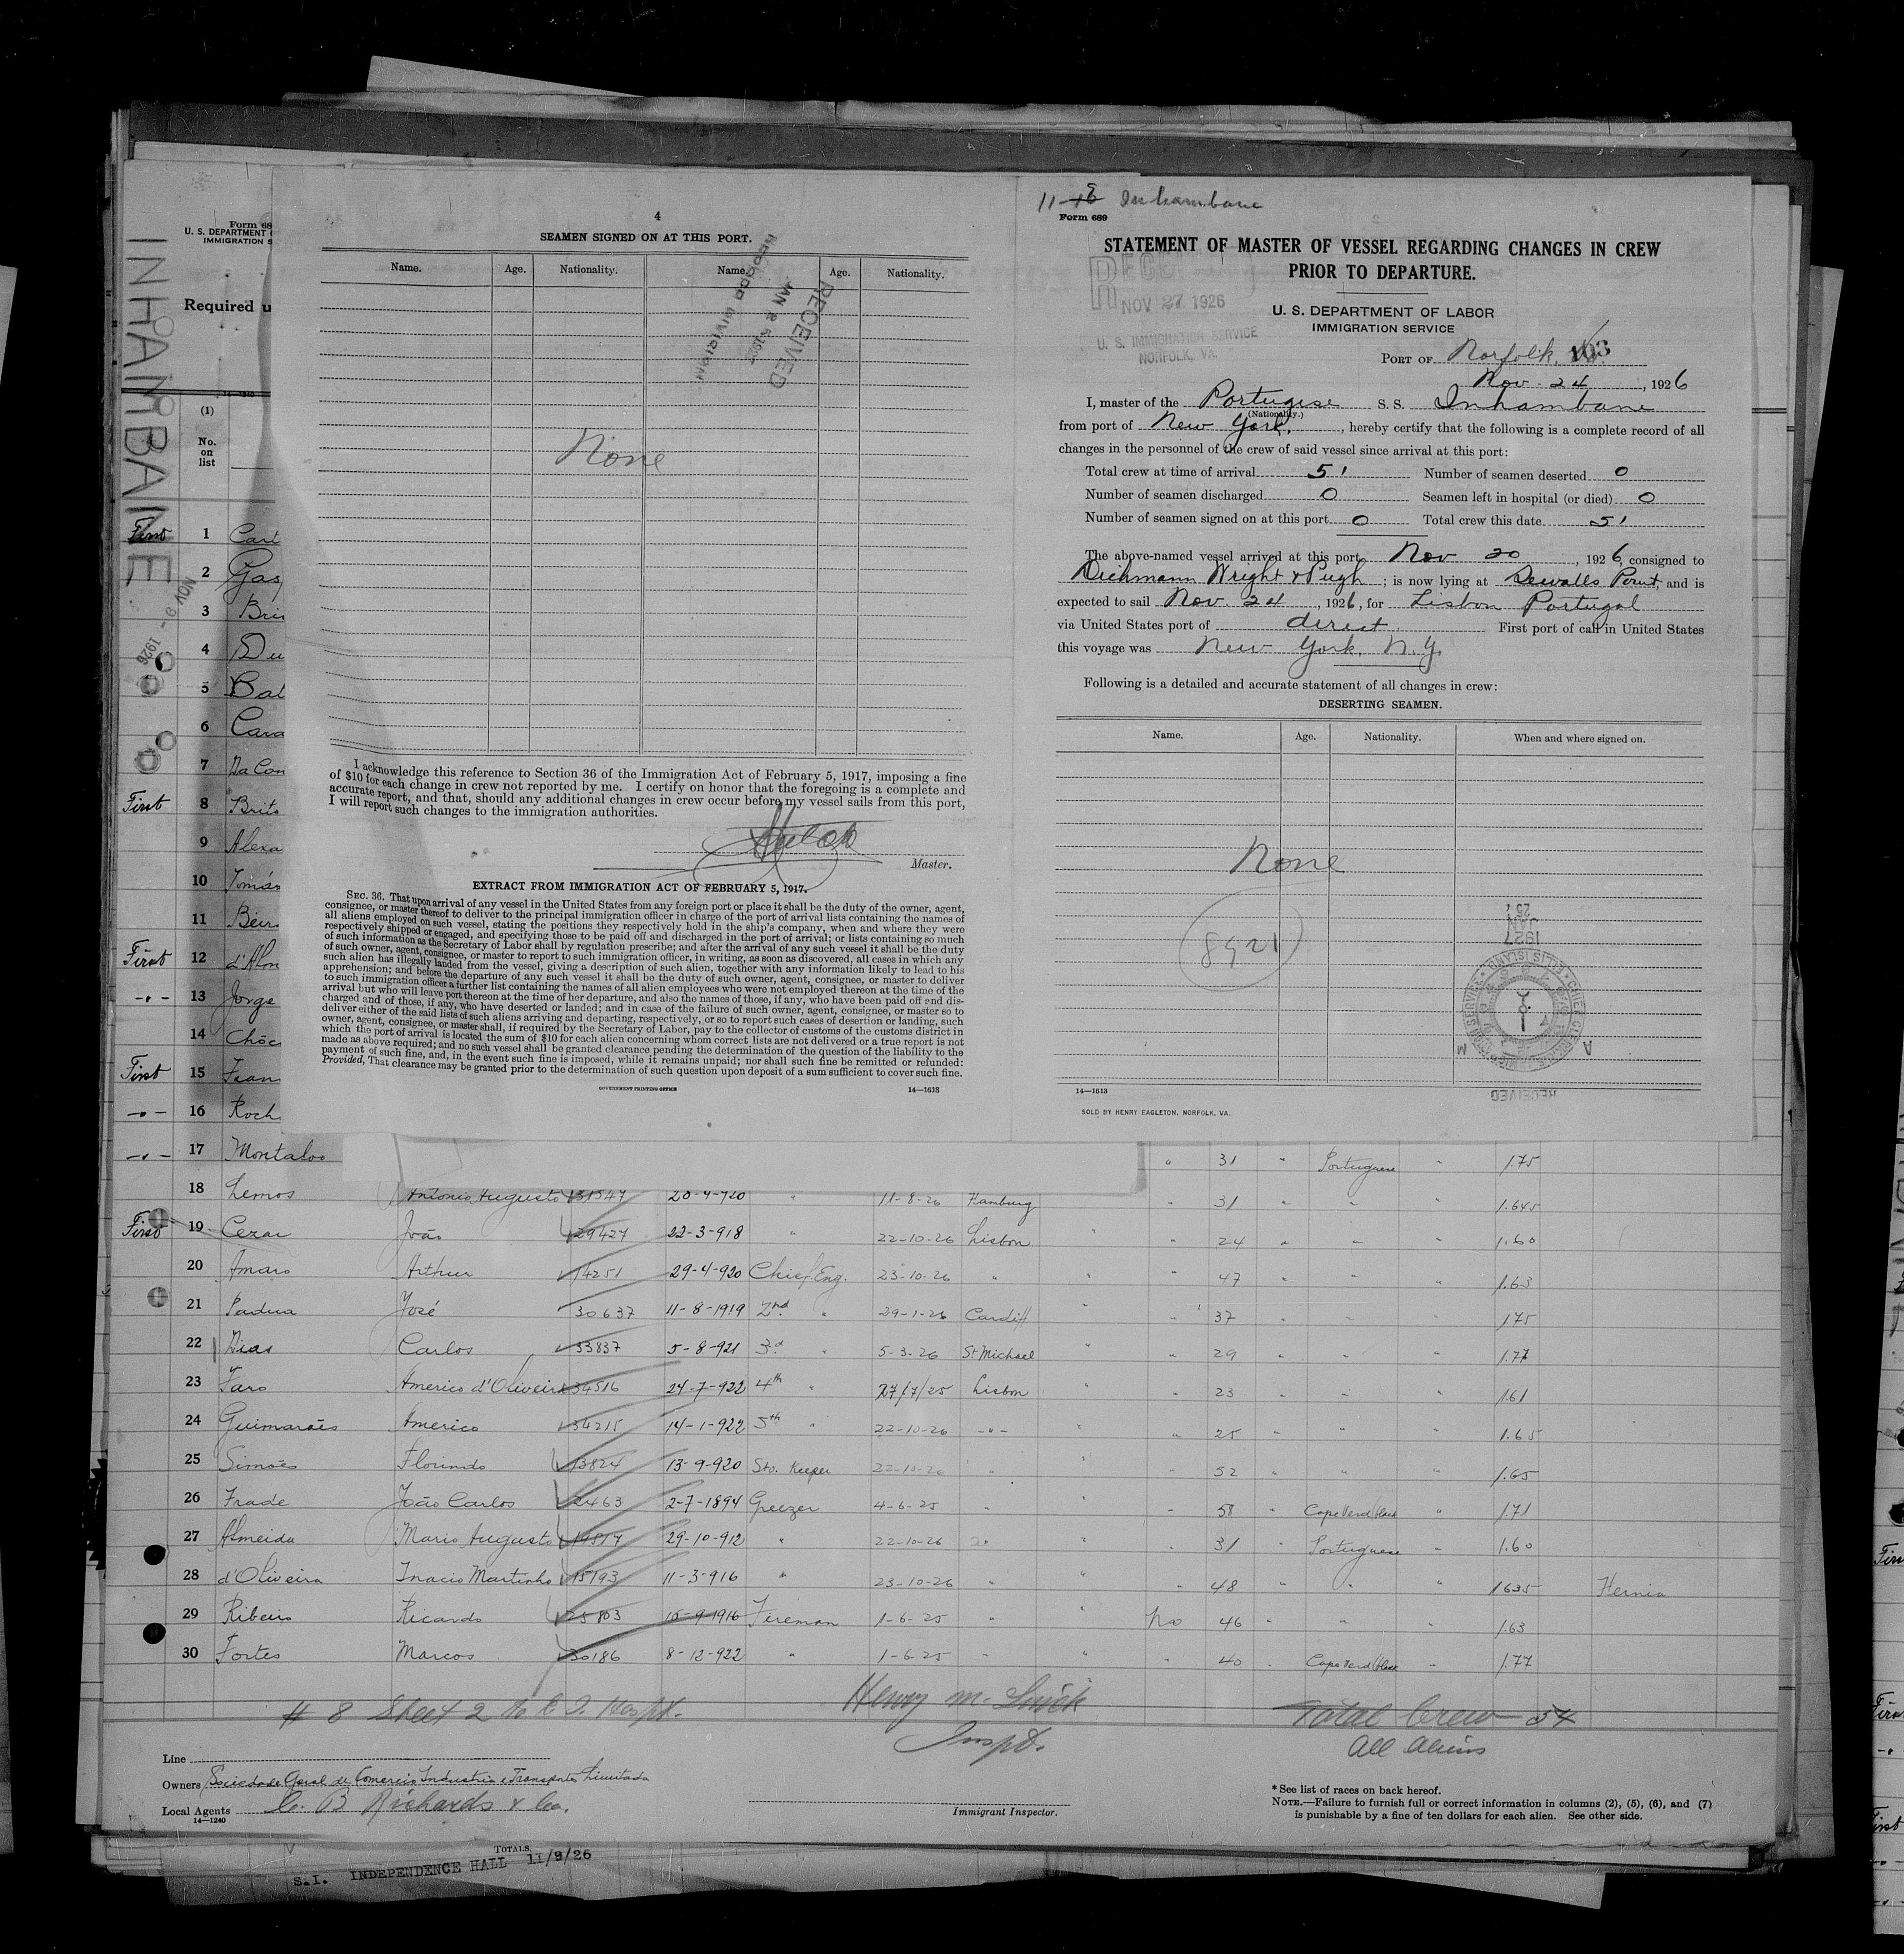 11-18 Inhambane
Form 689
STATEMENT OF MASTER OF VESSEL REGARDING CHANGES IN CREW
PRIOR TO DEPARTURE.
U. S. DEPARTMENT OF LABOR
IMMIGRATION SERVICE
NOV 27 1926
U. S. IMMIGRATION SERVICE
NORFOLK, VA.
PORT OF Norfolk, 103
Nov. 24, 1926
I, master of the Portugese S. S. Inhambane
(Nationality.)
from port of New York, hereby certify that the following is a complete record of all
changes in the personnel of the crew of said vessel since arrival at this port:
Total crew at time of arrival 51 Number of seamen deserted 0
Number of seamen discharged 0 Seamen left in hospital (or died) 0
Number of seamen signed on at this port 0 Total crew this date 51
The above-named vessel arrived at this port Nov 20, 1926, consigned to
Dichmann Wright & Pugh; is now lying at Sewalls Point, and is
expected to sail Nov. 24, 1926, for Lisbon Portugal
via United States port of direct. First port of call in United States
this voyage was New York, N.Y.
Following is a detailed and accurate statement of all changes in crew:
DESERTING SEAMEN.
Name. Age. Nationality. When and where signed on.
None
8921
1927
JAN
25
RECEIVED
14—1613
SOLD BY HENRY EAGLETON, NORFOLK, VA.
4
SEAMEN SIGNED ON AT THIS PORT.
Name. Age. Nationality. Name. Age. Nationality.
RECEIVED
RECORD DIVISION
None
I acknowledge this reference to Section 36 of the Immigration Act of February 5, 1917, imposing a fine
of $10 for each change in crew not reported by me. I certify on honor that the foregoing is a complete and
accurate report, and that, should any additional changes in crew occur before my vessel sails from this port,
I will report such changes to the immigration authorities.
Master.
EXTRACT FROM IMMIGRATION ACT OF FEBRUARY 5, 1917.
SEC. 36. That upon arrival of any vessel in the United States from any foreign port or place it shall be the duty of the owner, agent,
consignee, or master thereof to deliver to the principal immigration officer in charge of the port of arrival lists containing the names of
all aliens employed on such vessel, stating the positions they respectively hold in the ship's company, when and where they were
respectively shipped or engaged, and specifying those to be paid off and discharged in the port of arrival; or lists containing so much
of such information as the Secretary of Labor shall by regulation prescribe; and after the arrival of any such vessel it shall be the duty
of such owner, agent, consignee, or master to report to such immigration officer, in writing, as soon as discovered, all cases in which any
such alien has illegally landed from the vessel, giving a description of such alien, together with any information likely to lead to his
apprehension; and before the departure of any such vessel it shall be the duty of such owner, agent, consignee, or master to deliver
to such immigration officer a further list containing the names of all alien employees who were not employed thereon at the time of the
arrival but who will leave port thereon at the time of her departure, and also the names of those, if any, who have been paid off and dis-
charged and of those, if any, who have deserted or landed; and in case of the failure of such owner, agent, consignee, or master so to
deliver either of the said lists of such aliens arriving and departing, respectively, or so to report such cases of desertion or landing, such
owner, agent, consignee, or master shall, if required by the Secretary of Labor, pay to the collector of customs of the customs district in
which the port of arrival is located the sum of $10 for each alien concerning whom correct lists are not delivered or a true report is not
made as above required; and no such vessel shall be granted clearance pending the determination of the question of the liability to the
payment of such fine, and, in the event such fine is imposed, while it remains unpaid; nor shall such fine be remitted or refunded:
Provided, That clearance may be granted prior to the determination of such question upon deposit of a sum sufficient to cover such fine.
GOVERNMENT PRINTING OFFICE 14—1613
Form 68
U. S. DEPARTMENT
IMMIGRATION S
Required u
INHAMBANE
NOV 9 - 1926
(1)
No.
on
list
First 1 Carl
2 Gas
3 Bri
4 Du
5 Bat
6 Cava
7 Da Con
First 8 Brito
9 Alexa
10 Tomás
11 Beir
First 12 d'Alm
-"- 13 Jorge
14 Chöc
First 15 Fran
-"- 16 Roch
-"- 17 Montalvo " 31 " Portuguese " 1.75
18 Lemos Antonio Augusto 31547 20-4-920 " 11-8-26 Hamburg " 31 " " " 1.645
First 19 Cezar João 29427 22-3-918 " 22-10-26 Lisbon " " 24 " " " 1.60
20 Amaro Arthur 14251 29-4-920 Chief Eng. 23-10-26 " " " 47 " " " 1.63
21 Padua José 30637 11-8-1919 2nd " 29-1-26 Cardiff " " 37 " " " 1.75
22 Dias Carlos 33837 5-8-921 3d " 5-3-26 St Michael " " 29 " " " 1.77
23 Faro Americo d'Oliveira 34516 24-7-922 4th " 27/7/25 Lisbon " " 23 " " " 1.61
24 Guimarães Americo 34215 14-1-922 5th " 22-10-26 -"- " " 25 " " " 1.65
25 Simões Florindo 13824 13-9-920 Sto. Keeper 22-10-26 " " " 52 " " " 1.65
26 Frade João Carlos 2463 2-7-1894 Greezer 4-6-25 " " " 58 " Cape Verd/black " 1.71
27 Almeida Mario Augusto 14814 29-10-912 " 22-10-26 " " " 31 " Portuguese " 1.60
28 d'Oliveira Inacio Martinho 15193 11-3-916 " 23-10-26 " " " 48 " " " 1635 Hernia
29 Ribeiro Ricardo 25803 15-9-1916 Fireman 1-6-25 " " No 46 " " " 1.63
30 Fortes Marcos 30186 8-12-922 " 1-6-25 " " " 40 " Cape Verd/black " 1.77
# 8 Sheet 2 to E. I. Hospt. Henry M. Total Crew 54
Inspt. All Aliens
Line
Owners Sociedade Geral de Comercio Industria e Transportes Limitada
Local Agents C. B Richards & Co. Immigrant Inspector.
14—1240
* See list of races on back hereof.
NOTE.—Failure to furnish full or correct information in columns (2), (5), (6), and (7)
is punishable by a fine of ten dollars for each alien. See other side.
TOTALS
S.I. INDEPENDENCE HALL 11/9/26